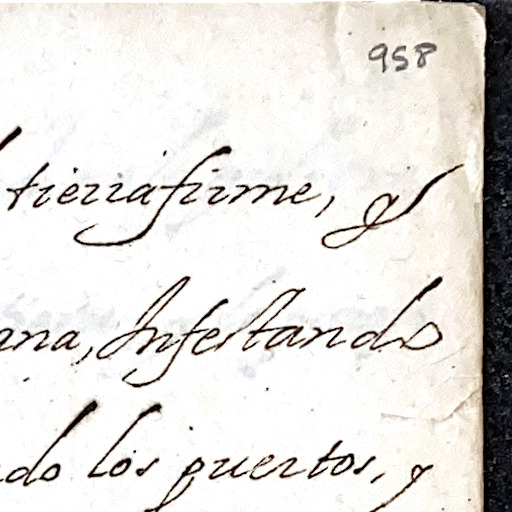 958
tierrafirme, y
ana, Infestando
do los puertos, y